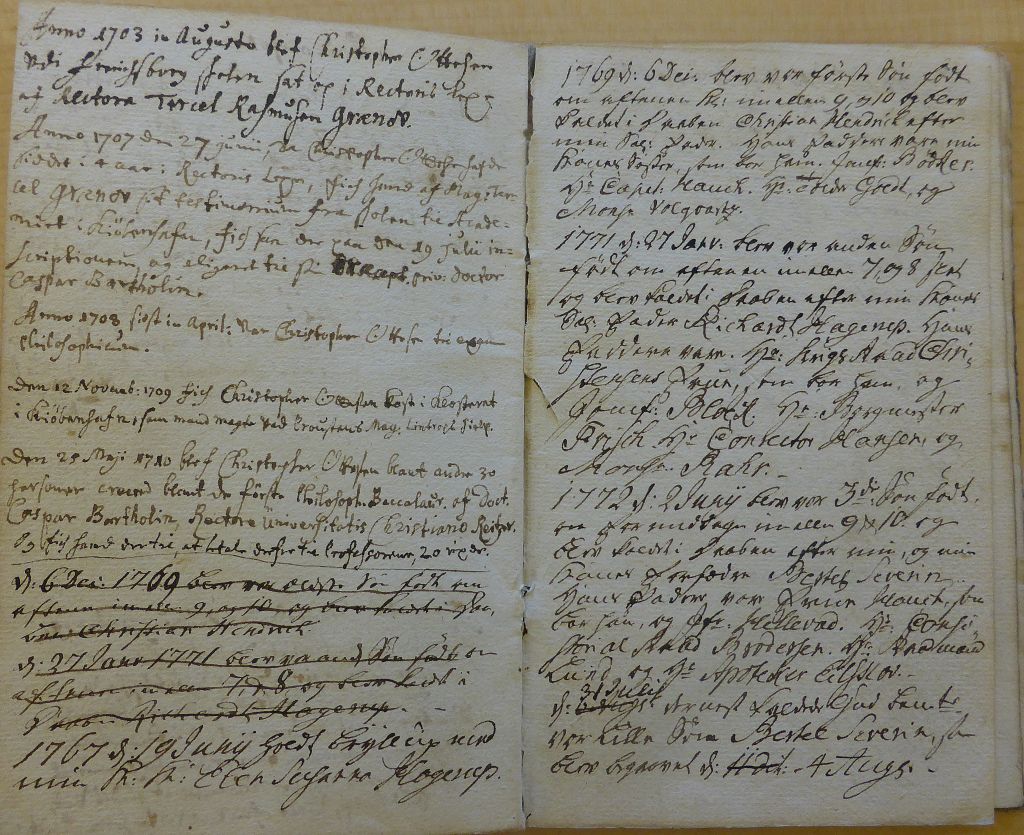 Anno 1703 in Augusto blef Christopher Ottesen
udi Friderichsborg skolen sat op i Rectoris
af Rectore Torcel Rasmusen Grænov.
Anno 1707 den 27 junii, da Christopher Ottesen hafde
siddet i 4 aar i Rectoris Lexe, fich hand af Mag: Tor-
cel Grænov sit testimonium fra skolen til Acade-
miet i Kiøbenhafn, fich saa der paa den 19 Julii in-
scriptionem priv: doctor
Caspar Bartholin.
Anno 1708 sidst in April: var Christopher Ottesen til examen
philosophicum.
Den 12 Novemb: 1709 fich Christopher Ottesen kost i Klosteret
i Kiøbenhafn, som mand magte ved Provstens Mag:
Den 25 Maji 1710 blef Christopher Ottesen blant andre 30
personer creered blant de første Philosoph: Baccalaur: af Doct.
Caspar Bartholin, Rectore Universitatis Christiano Reitzer.
og fich hand der til, at betale derfor til Professorerne, 20 rixdr.
d: 6 Dec: 1769 blev vor ældste Søn født om
aftenen imellem 9, og 10, og blev kaldet i
Christian Hendrich
d: 27 Janr 1771 blev vor anden Søn født om
aftenen imellem 7, og 8 og blev kaldt i
Daaben Richardt Hagerup.
1767 d: 19 Junij holdt bryllup med
min K: K: Elen Susanna Hagerup.
1769 d: 6 Dec: blev vor første Søn født
om aftenen Kl: imellem 9, og 10 og blev
kaldet i Daaben Christian Hendrich efter
min Sal: Fader. Hans Faddere vare min
Kones Søster, som bar ham. Jomf: Bødker.
Hr Capit: Hauch. Hr: Holdt, og
Monsr Volqvartz.
1771 d: 27 Janr: blev vor anden Søn
født om aftenen imellem 7, og 8 slet
og blev kaldet i Daaben efter min Kones
Sal: Fader Richardt Hagerup. Hans
Faddere vare. Hr: Krigs Raad Chri-
stensens Frue, som bar ham, og
Jomf: Block. Hr Borgmester
Frisch Hr Conrector Hansen, og
Monsr: Rahr.
1772 d: 2 Junij blev vor 3die Søn født.
om formidagen imellem 9 & 10. og
blev kaldet i Daaben efter min, og min
Kones Forfædre Bertel Severin
Hans Fadder var Frue Hauch, som
bar ham, og Jfr. Hellevad. Hr Consi-
storial Raad Brodersen. Hr:
Lund og Hr Apotecker Eilskov.
31 Julij
d: dernest kaldede Gud bemte
vor Lille Søn Bertel Severin, som
blev begravet d: 4 Aug: